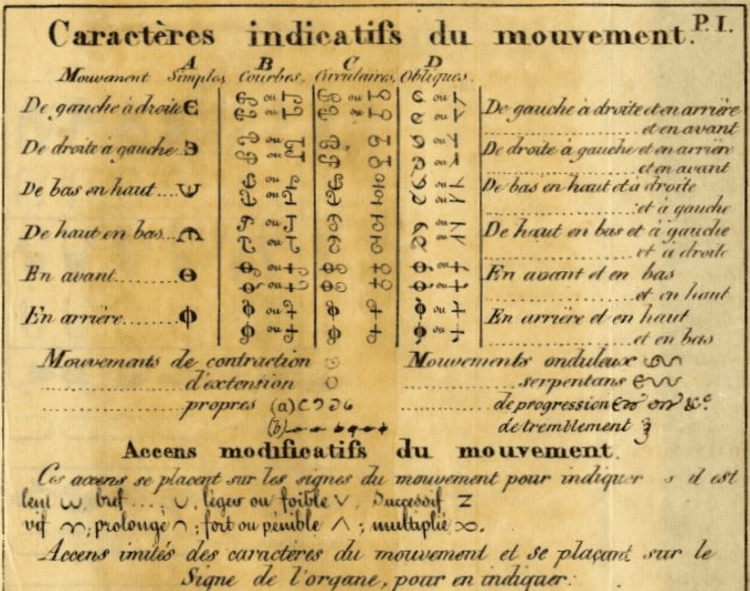 P. I.
Caractères indicatifs du mouvement.
A B C D
Mouvement Simples, Courbes, Circulaires, Obliques.
De gauche à droite Є ou ou ou De gauche à droite et en arrière
ou ou ou et en avant
De droite à gauche Э ou ou De droite à gauche et en arrière
ou ou et en avant
De bas en haut ... ou ou De bas en haut et à droite
ou ou et à gauche
De haut en bas ... ou ou De haut en bas et à gauche
ou et à droite
En avant ........ ou ou En avant et en bas
ou ou et en haut
En arrière ....... ou ou En arrière et en haut
ou ou et en bas
Mouvements de contraction Mouvements onduleux
d'extension serpentans
propres (a) de progression &c.
(b) de tremblement
Accens modificatifs du mouvement.
Ces accens se placent sur les signes du mouvement pour indiquer s il est
lent ω, bref ...; ∪, léger ou foible ∨, Successif Z
vif ; prolongé ∩ ; fort ou pénible ∧ ; multiplié ∞.
Accens imités des caractères du mouvement et se plaçant sur le
Signe de l'organe, pour en indiquer: